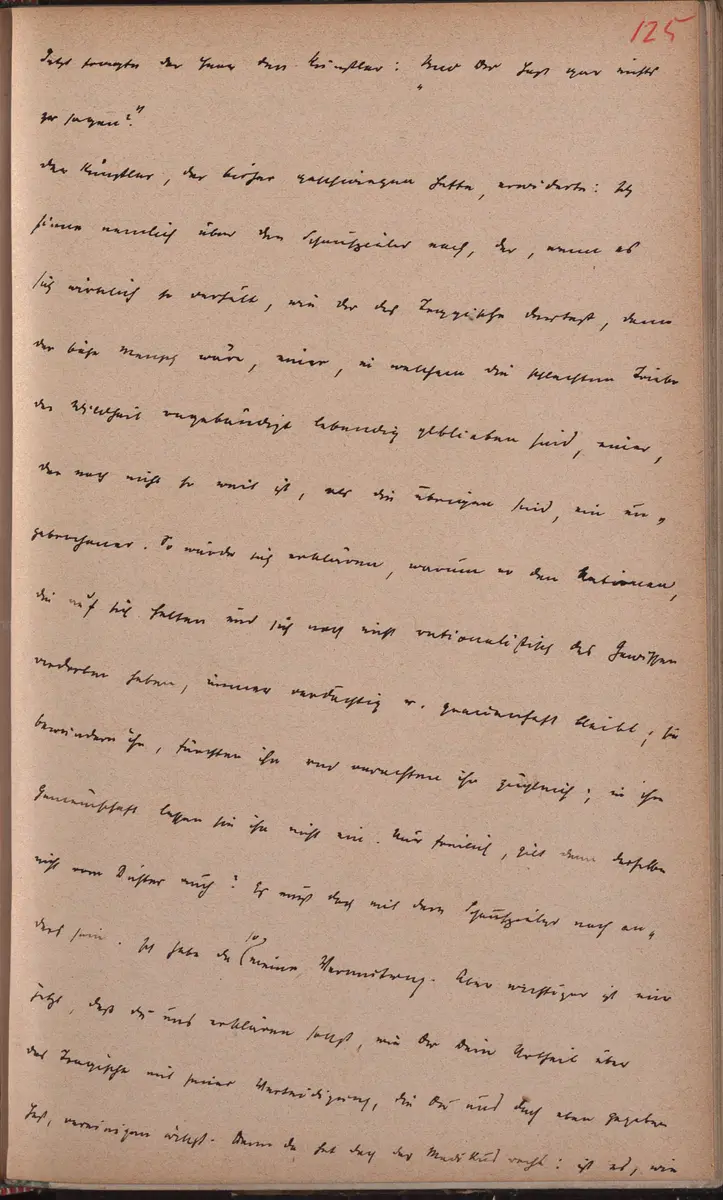 125
Jetzt fragte der Herr den Künstler: „Und Du hast gar nichts
zu sagen?"
Der Künstler, der bisher geschwiegen hatte, erwiderte: Ich
sinne nemlich über den Schauspieler nach, der, wenn es
sich wirklich so verhält, wie Du das Tragische deutest, dann
der böse Mensch wäre, einer, in welchem die schlechten Triebe
der Wildheit ungebändigt lebendig geblieben sind, einer,
der noch nicht so weit ist, als die übrigen sind, ein un„
gebrochener. So würde sich erklären, warum er den Nationen,
die auf sich halten und sich noch nicht rationalistisch das Gewissen
verdorben haben, immer verdächtig u. grauenhaft bleibt; sie
bewundern ihn, fürchten ihn und verachten ihn zugleich; in ihre
Gemeinschaft lassen sie ihn nicht ein. Nur freilich, gilt denn dasselbe
nicht vom Dichter auch? Es muß doch mit dem Schauspieler noch an„
ders sein. Ich habe da so meine Vermutung. Aber wichtiger ist mir
jetzt, daß Du uns erklären sollst, wie Du Dein Urtheil über
das Tragische mit seiner Verteidigung, die Du uns doch eben gegeben
hast, vereinigen willst. Denn da hat doch der Medikus recht: ist es, wie